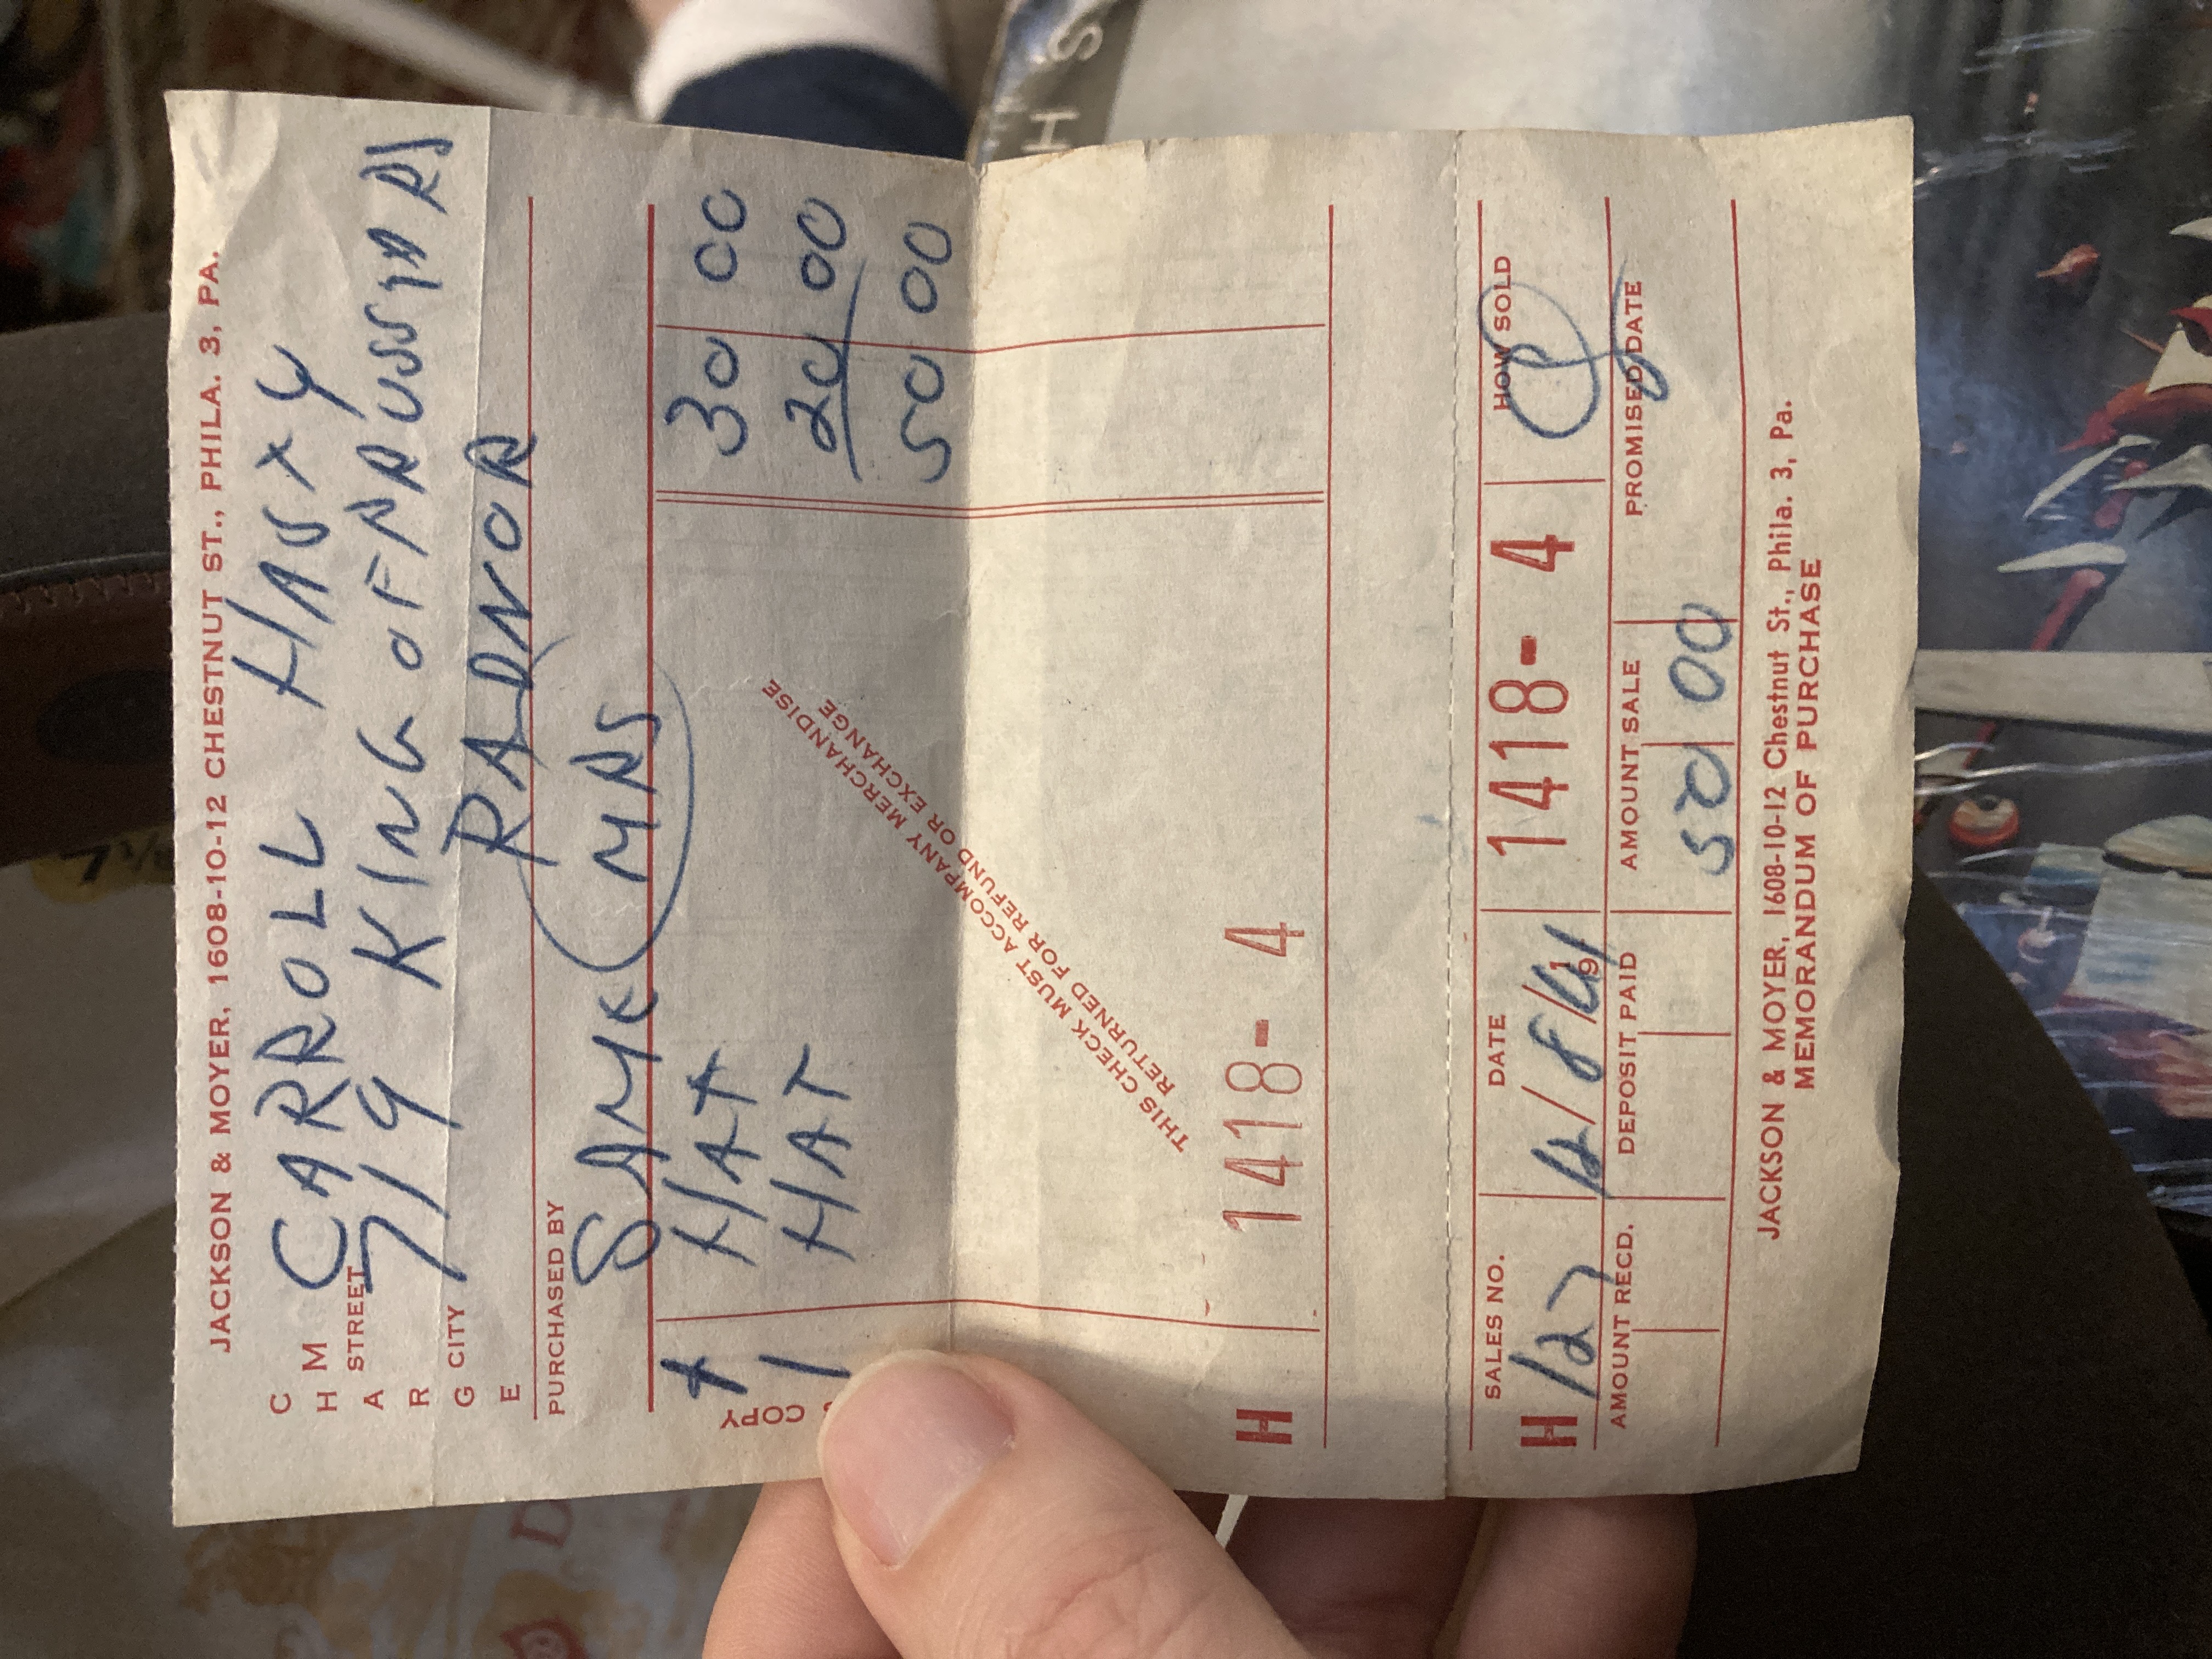 JACKSON & MOYER, 1608-10-12 CHESTNUT ST., PHILA. 3, PA.
CHARGE
M CARROLL HASXY
STREET 719 KING OF PRUSSIA RD
CITY RADNOR
PURCHASED BY SAME (MRS
COPY
1 HAT 30 00
1 HAT 20 00
50 00
THIS CHECK MUST ACCOMPANY MERCHANDISE
RETURNED FOR REFUND OR EXCHANGE
H 1418-4
SALES NO. DATE HOW SOLD
H 127 12/8/ 19 1418-4
AMOUNT RECD. DEPOSIT PAID AMOUNT SALE PROMISED DATE
50 00
JACKSON & MOYER, 1608-10-12 Chestnut St., Phila. 3, Pa.
MEMORANDUM OF PURCHASE
H S